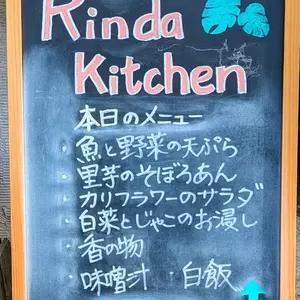 Rinda
Kitchen
本日のメニュー
・魚と野菜の天ぷら
・里芋のそぼろあん
・カリフラワーのサラダ
・白菜とじゃこのお浸し
・香の物
・味噌汁 ・白飯